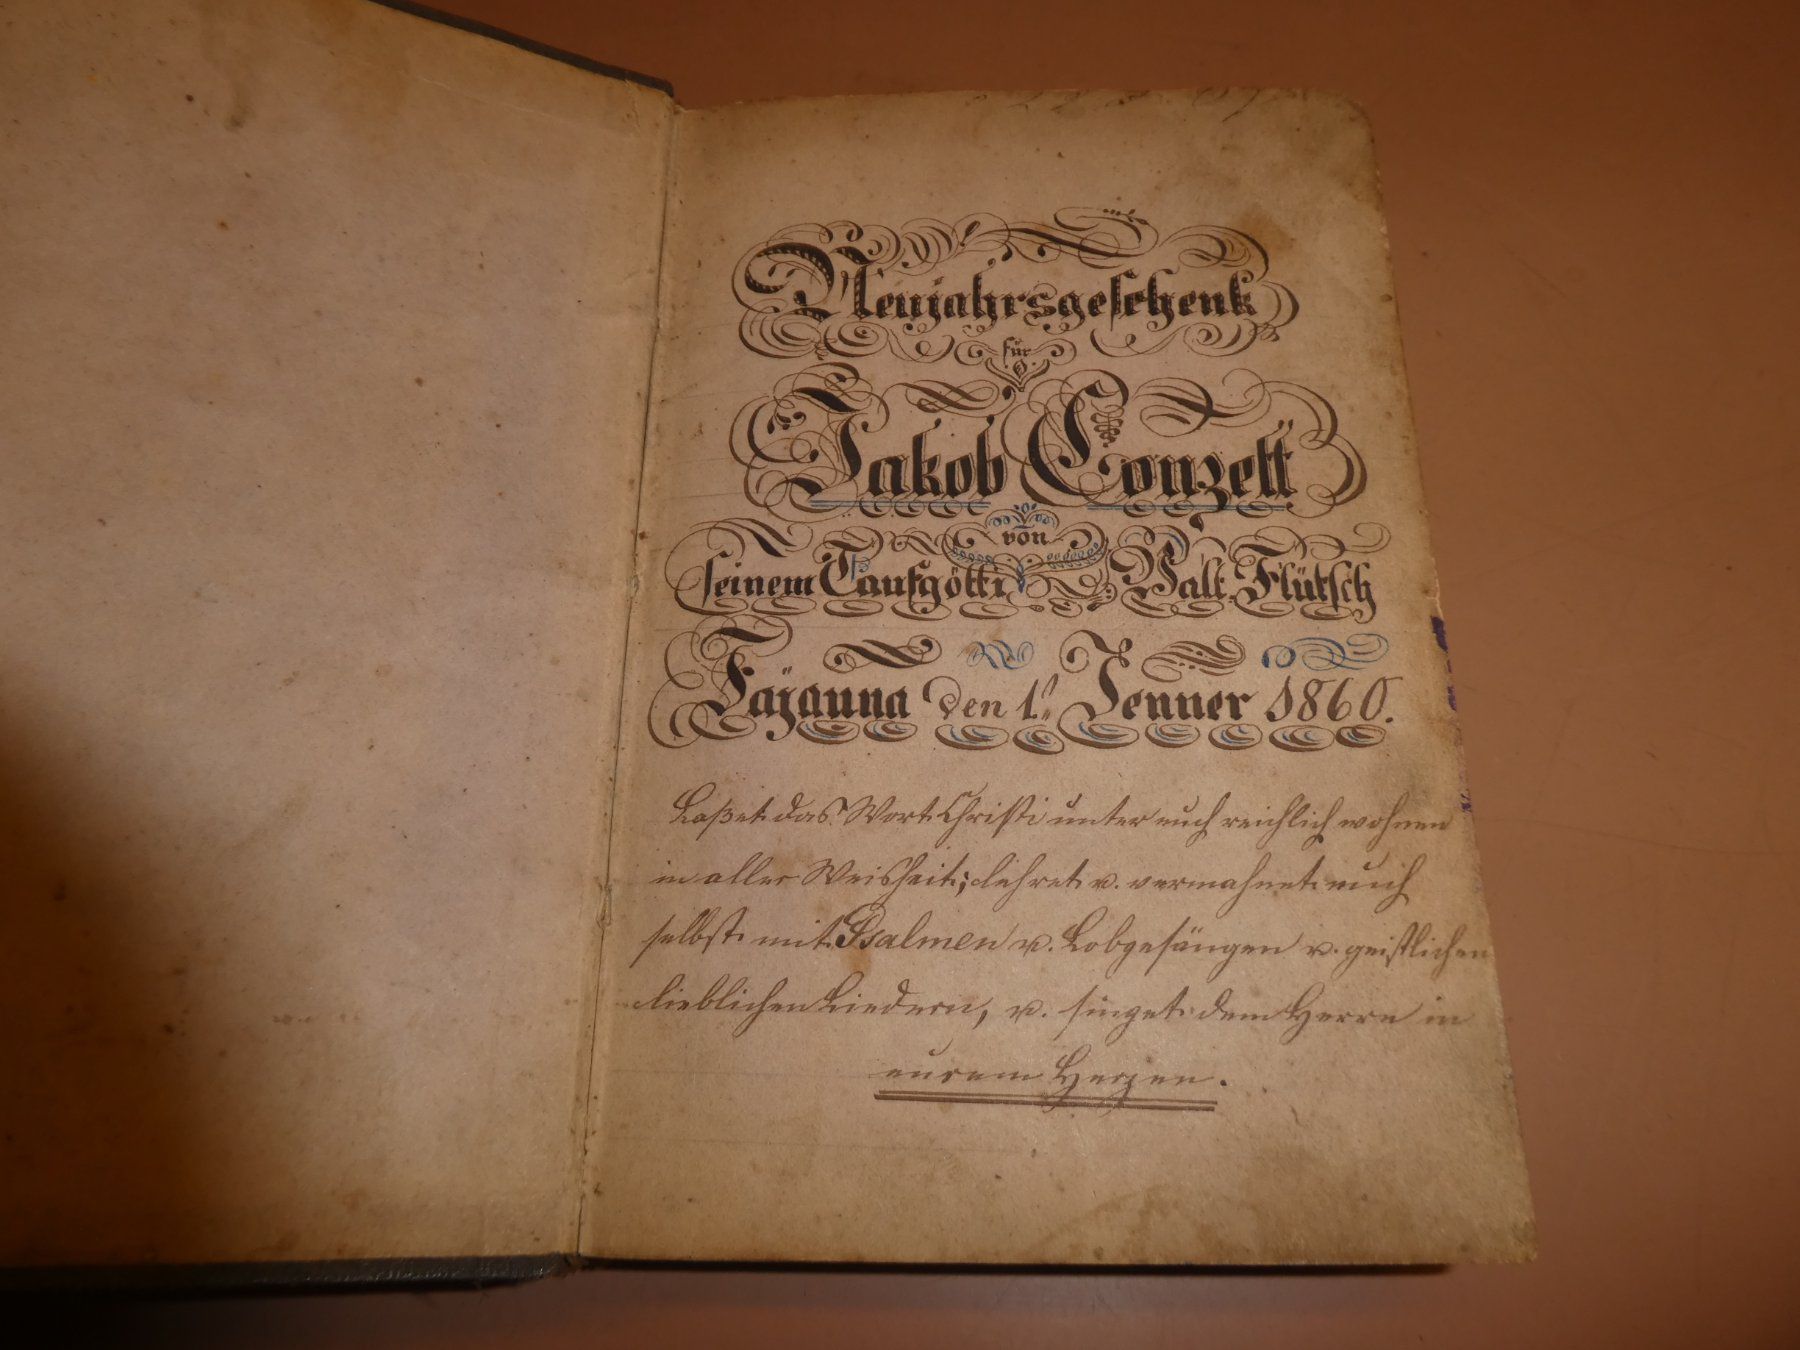 Neujahrsgeschenk
für
Jakob Conzett
von
seinem Taufgötti Walt. Flütsch
Fäjauna den 1. Jenner 1860.
Laßet das Wort Christi unter euch reichlich wohnen
in aller Weisheit; lehret u. vermahnet euch
selbst mit Psalmen u. Lobgesängen u. geistlichen
lieblichen Liedern, u. singet dem Herrn in
eurem Herzen.